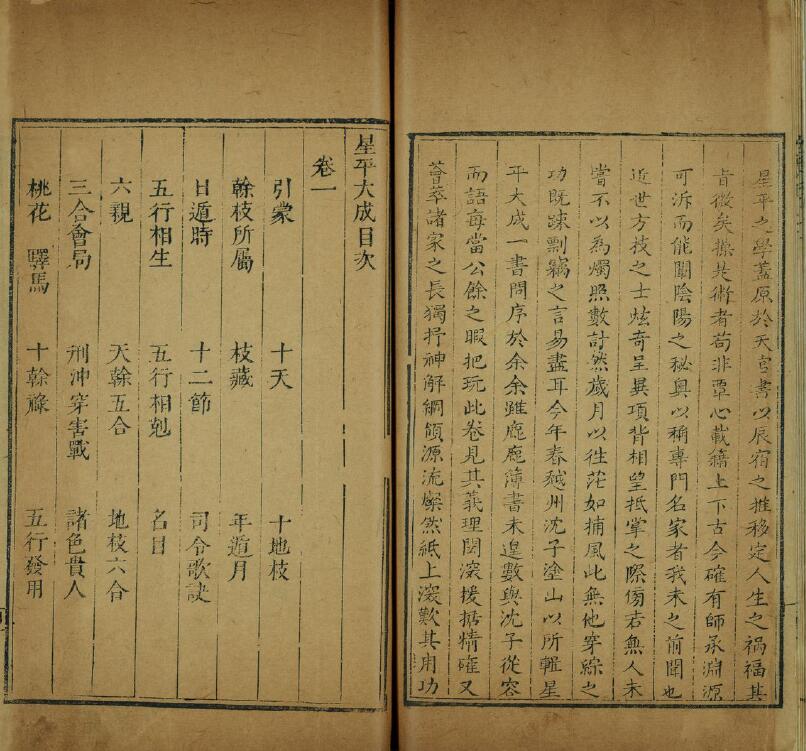 星平之學蓋原於天官書以辰宿之推移定人生之禍福其
旨微矣操其術者苟非覃心載籍上下古今確有師承淵源
可泝而能闡陰陽之秘奧以稱專門名家者我未之前聞也
近世方技之士炫奇呈異項背相望抵掌之際傍若無人未
嘗不以為燭照數計然歲月以徃茫如捕風此無他穿綜之
功既踈剽竊之言易盡耳今年春越州沈子塗山以所輯星
平大成一書問序於余余雖鹿鹿簿書未遑數與沈子從容
而語每當公餘之暇把玩此卷見其義理閎深援據精確又
薈萃諸家之長獨抒神解綱領源流燦然紙上深歎其用功
星平大成目次
卷一
引蒙 十天 十地枝
幹枝所屬 枝藏 年遁月
日遁時 十二節 司令歌訣
五行相生 五行相剋 名目
六親 天幹五合 地枝六合
三合會局 刑沖穿害戰 諸色貴人
桃花 驛馬 十幹祿 五行發用